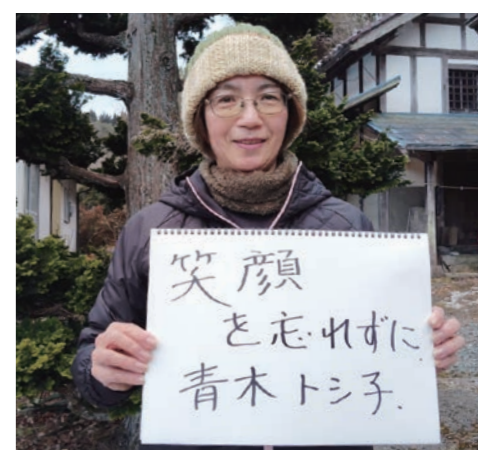 笑顔
を忘れずに、
青木トシ子、